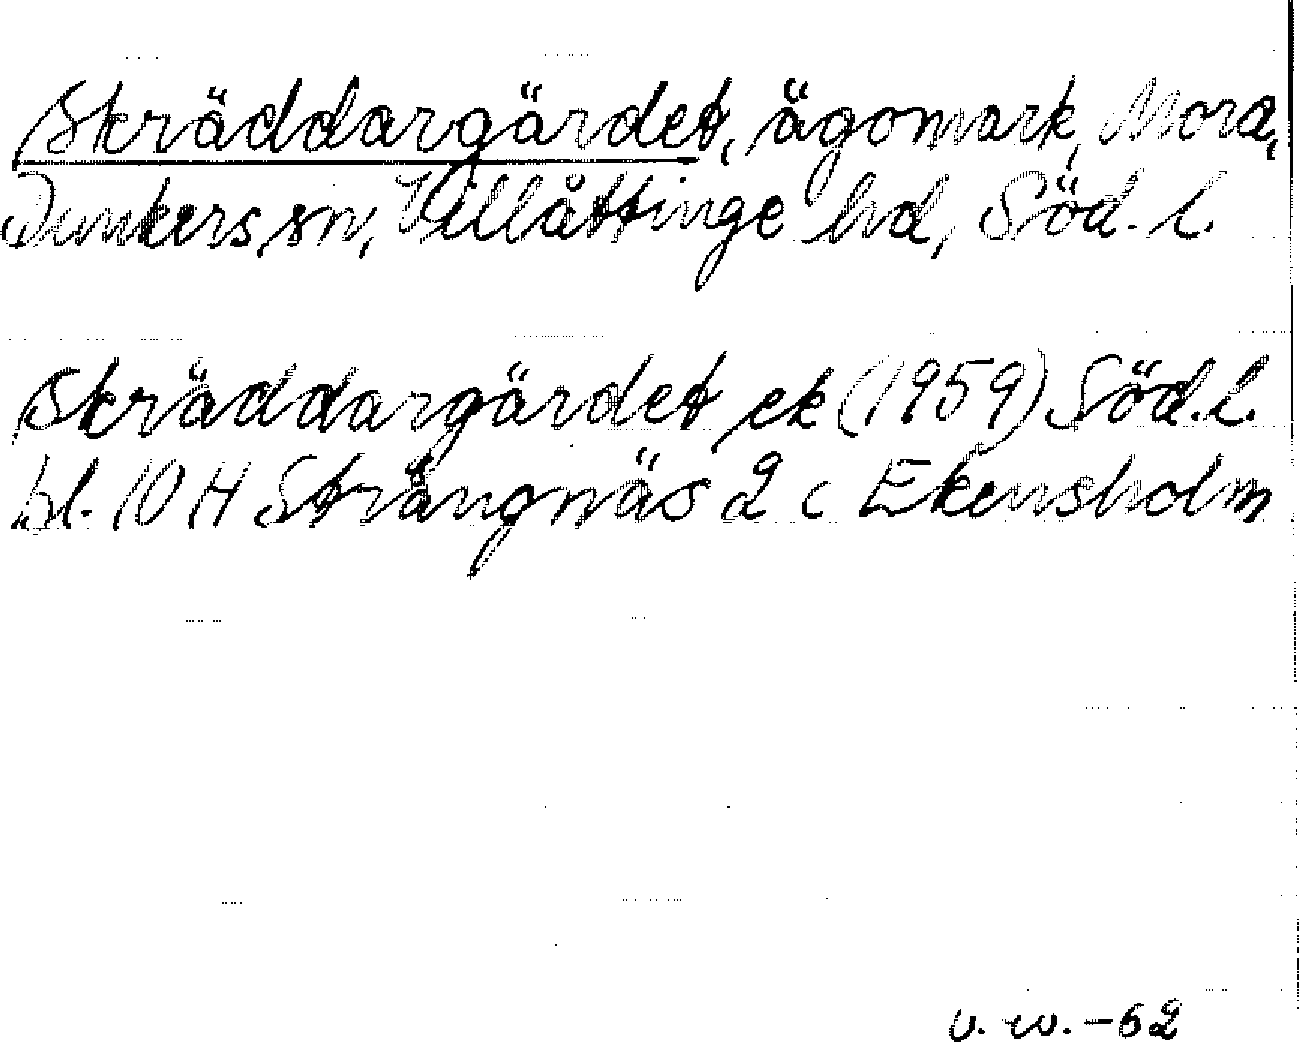 Skräddargärdet, ägomark, Mora,
Dunkers sn, Villåttinge hd, Söd. l.
Skräddargärdet ek (1959) Söd. l.
bl. 10 H Strängnäs 2 c Ekensholm
v. w. -62